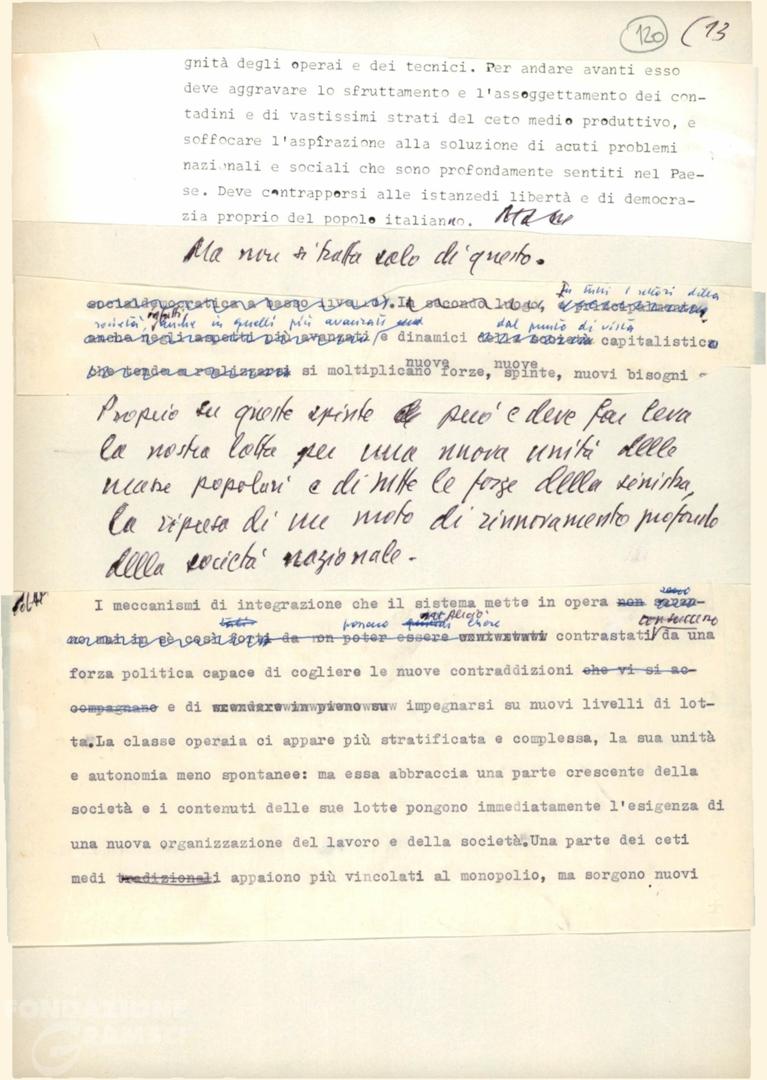 120 (13
gnità degli operai e dei tecnici. Per andare avanti esso
deve aggravare lo sfruttamento e l'assoggettamento dei con-
tadini e di vastissimi strati del ceto medio produttivo, e
soffocare l'aspîrazione alla soluzione di acuti problemi
nazionali e sociali che sono profondamente sentiti nel Pae-
se. Deve contrapporsi alle istanzedi libertà e di democra-
zia proprio del popolo italianno.
Ma non si tratta solo di questo.
In tutti i settori della
socialdemocratica a basso livello). In secondo luogo, e principalmente,
società, infatti, anche in quelli più avanzati dal punto di vista
anche negli aspetti più avanzati e dinamici della società capitalistica
nuove nuove
che tende a realizzarsi si moltiplicano forze, spinte, nuovi bisogni
Proprio su queste spinte può e deve far leva
la nostra lotta per una nuova unità delle
masse popolari e di tutte le forze della sinistra,
la ripresa di un moto di rinnovamento profondo
della società nazionale.
I meccanismi di integrazione che il sistema mette in opera non sono
no mai in sè così forti da non poter essere contrastati da una
possono essere
forza politica capace di cogliere le nuove contraddizioni che vi si ac-
compagnano e di impegnarsi su nuovi livelli di lot-
ta.La classe operaia ci appare più stratificata e complessa, la sua unità
e autonomia meno spontanee: ma essa abbraccia una parte crescente della
società e i contenuti delle sue lotte pongono immediatamente l'esigenza di
una nuova organizzazione del lavoro e della società.Una parte dei ceti
medi tradizionali appaiono più vincolati al monopolio, ma sorgono nuovi
FONDAZIONE
GRAMSCI